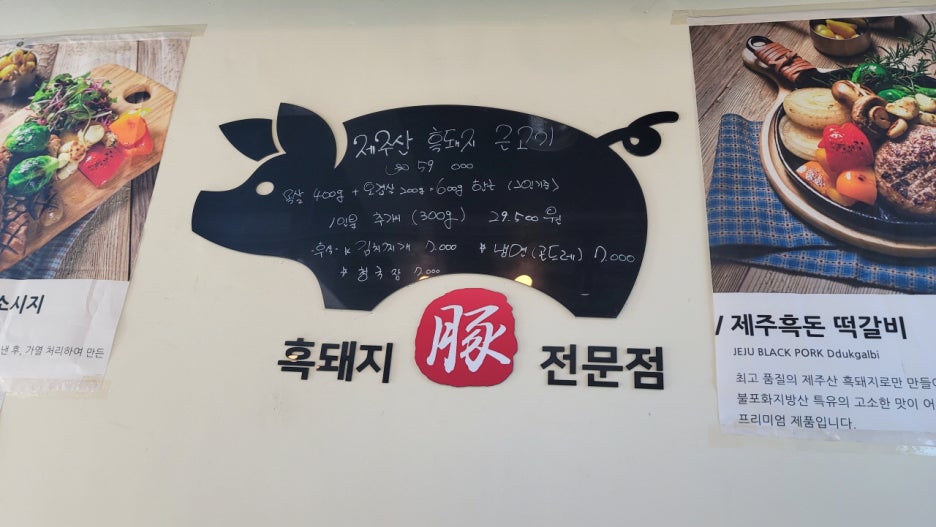 제주산 흑돼지 근고기
59 000
목살 400g + 오겹살 200g = 600g 한근 (2인기준)
1인분 추가 (300g) 29.500원
후식 김치찌개 7.000 * 냉면 7.000
* 청국장 7.000
흑돼지 豚 전문점
소시지
낸 후, 가열 처리하여 만든
/ 제주흑돈 떡갈비
JEJU BLACK PORK Ddukgalbi
최고 품질의 제주산 흑돼지로만 만들어
불포화지방산 특유의 고소한 맛이
프리미엄 제품입니다.